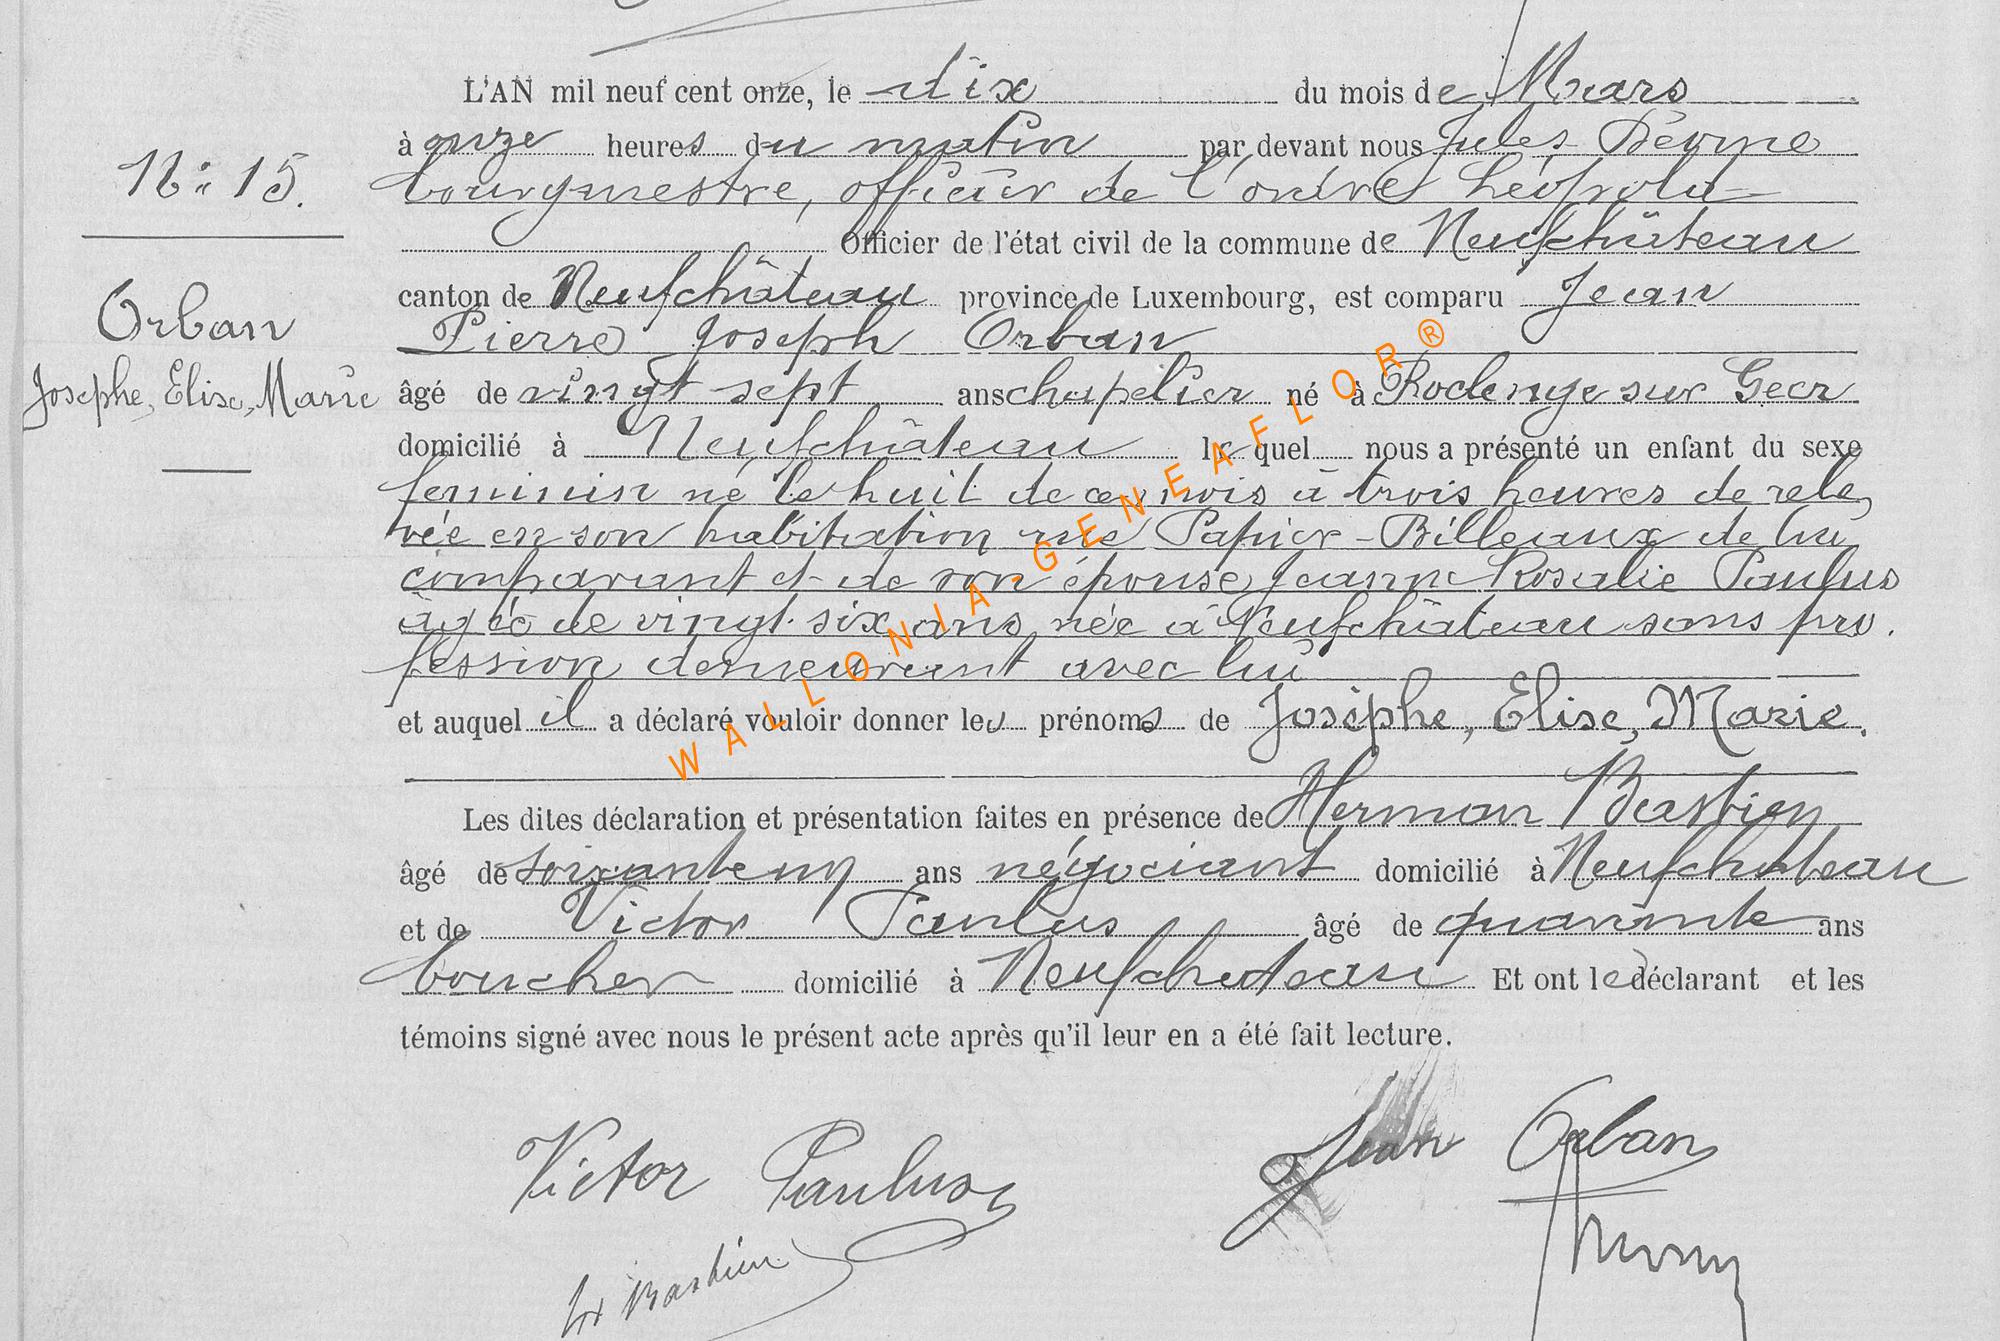 L'AN mil neuf cent onze, le dix du mois de Mars
à onze heures du matin par devant nous Jules
N° 15.
bourgmestre, officier de l'ordre Léopold
Officier de l'état civil de la commune de Neufchâteau
canton de Neufchâteau province de Luxembourg, est comparu Jean
Orban
Pierre Joseph Orban
Josephe, Elise, Marie
âgé de vingt sept ans chapelier né à Roclenge sur Geer
domicilié à Neufchâteau lequel nous a présenté un enfant du sexe
feminin né le huit de ce mois à trois heures de rele
vée en son habitation rue Papier-Billeaux de lui
comparant et de son épouse Jeanne Rosalie Paulus
âgée de vingt-six ans, née à Neufchâteau sans pro.
fession demeurant avec lui
et auquel il a déclaré vouloir donner les prénoms de Josèphe, Elise, Marie.
Les dites déclaration et présentation faites en présence de Herman Bastien
âgé de soixante un ans négociant domicilié à Neufchateau
et de Victor Paulus âgé de quarante ans
boucher domicilié à Neufchateau Et ont le déclarant et les
témoins signé avec nous le présent acte après qu'il leur en a été fait lecture.
Victor Paulus Jean Orban
Bastien
WALLONIA-GENEAFLOR®